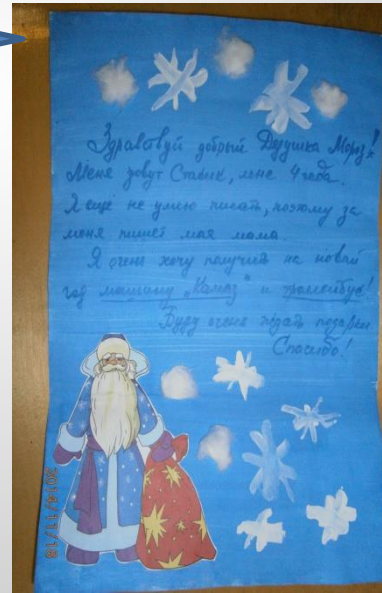 Здравствуй добрый Дедушка Мороз!
Меня зовут Славик, мне 4 года.
Я ещё не умею писать, поэтому за
меня пишет моя мама.
Я очень хочу получить на новый
год машину „Камаз" и троллейбус!
Буду очень ждать подарки
Спасибо!
2014/11/18